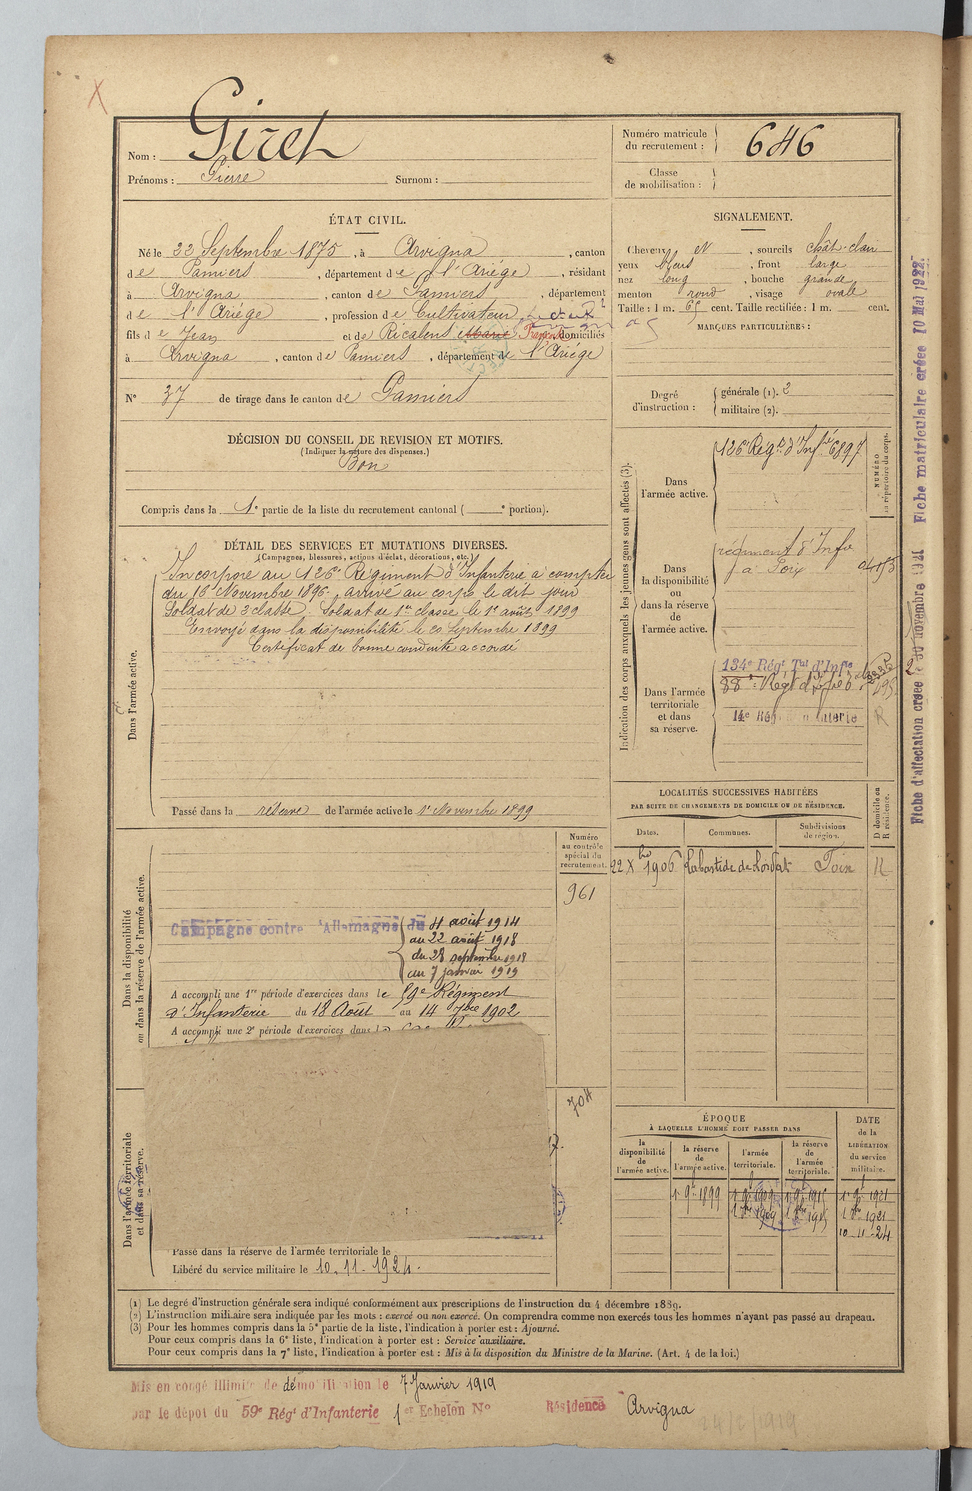 X
Nom : Giret
Prénoms : Pierre Surnom :
Numéro matricule du recrutement : 646
Classe de mobilisation :
ÉTAT CIVIL.
Né le 22 Septembre 1875, à Arvigna, canton
de Pamiers, département de l'Ariége, résidant
à Arvigna, canton de Pamiers, département
de l'Ariége, profession de Cultivateur
fils de Jean et de Ricalens Marie Françoise domiciliés
à Arvigna, canton de Pamiers, département de l'Ariége
N° 37 de tirage dans le canton de Pamiers
SIGNALEMENT.
Cheveux et, sourcils chât-clair
yeux bleus, front large
nez long, bouche grande
menton rond, visage ovale
Taille : 1 m. 65 cent. Taille rectifiée : 1 m. cent.
MARQUES PARTICULIÈRES :
Degré d'instruction : générale (1). 2
militaire (2).
DÉCISION DU CONSEIL DE REVISION ET MOTIFS.
(Indiquer la nature des dispenses.)
Bon
Compris dans la 1e partie de la liste du recrutement cantonal ( e portion).
DÉTAIL DES SERVICES ET MUTATIONS DIVERSES.
(Campagnes, blessures, actions d'éclat, décorations, etc.)
Dans l'armée active.
Incorporé au 126e Régiment d'Infanterie à compter
du 16 Novembre 1896. arrivé au corps le dit jour
Soldat de 2e classe. Soldat de 1re classe le 1er août 1899
Envoyé dans la disponibilité le 20 Septembre 1899
Certificat de bonne conduite accordé
Passé dans la réserve de l'armée active le 1r Novembre 1899
Indication des corps auxquels les jeunes gens sont affectés (3).
Dans l'armée active.
126e Régt d'Infie 6897
NUMÉRO au répertoire du corps.
Dans la disponibilité ou dans la réserve de l'armée active.
régiment d'Infie
à Foix
Dans l'armée territoriale et dans sa réserve.
134e Régt Tal d'Infie
88e Régt d'Infie
14e Rég
R
LOCALITÉS SUCCESSIVES HABITÉES
PAR SUITE DE CHANGEMENTS DE DOMICILE OU DE RÉSIDENCE.
Dates. Communes. Subdivisions de région. D domicile ou R résidence.
22 Xbre 1906 Labastide de Lordat Foix R
Dans la disponibilité ou dans la réserve de l'armée active.
Numéro au contrôle spécial du recrutement.
961
Campagne contre l'Allemagne du 4 août 1914
au 22 août 1918
du 28 septembre 1918
au 7 janvier 1919
A accompli une 1re période d'exercices dans le 59e Régiment
d'Infanterie du 18 Août au 14 7bre 1902
A accompli une 2e période d'exercices dans le
704
Dans l'armée territoriale et dans sa réserve.
Passé dans la réserve de l'armée territoriale le
Libéré du service militaire le 10.11.1924.
ÉPOQUE
À LAQUELLE L'HOMME DOIT PASSER DANS
la disponibilité de l'armée active.
la réserve de l'armée active.
l'armée territoriale.
la réserve de l'armée territoriale.
DATE de la LIBÉRATION du service militaire.
1r 9e 1899
10-11-24
(1) Le degré d'instruction générale sera indiqué conformément aux prescriptions de l'instruction du 4 décembre 1889.
(2) L'instruction militaire sera indiquée par les mots : exercé ou non exercé. On comprendra comme non exercés tous les hommes n'ayant pas passé au drapeau.
(3) Pour les hommes compris dans la 5e partie de la liste, l'indication à porter est : Ajourné.
Pour ceux compris dans la 6e liste, l'indication à porter est : Service auxiliaire.
Pour ceux compris dans la 7e liste, l'indication à porter est : Mis à la disposition du Ministre de la Marine. (Art. 4 de la loi.)
Mis en congé illimité de démobilisation le 7 Janvier 1919
par le dépot du 59e Régt d'Infanterie 1er Echelon N° Résidence Arvigna
Fiche d'affectation créée le 30 novembre 1921 Fiche matriculaire créée 10 Mai 1922.